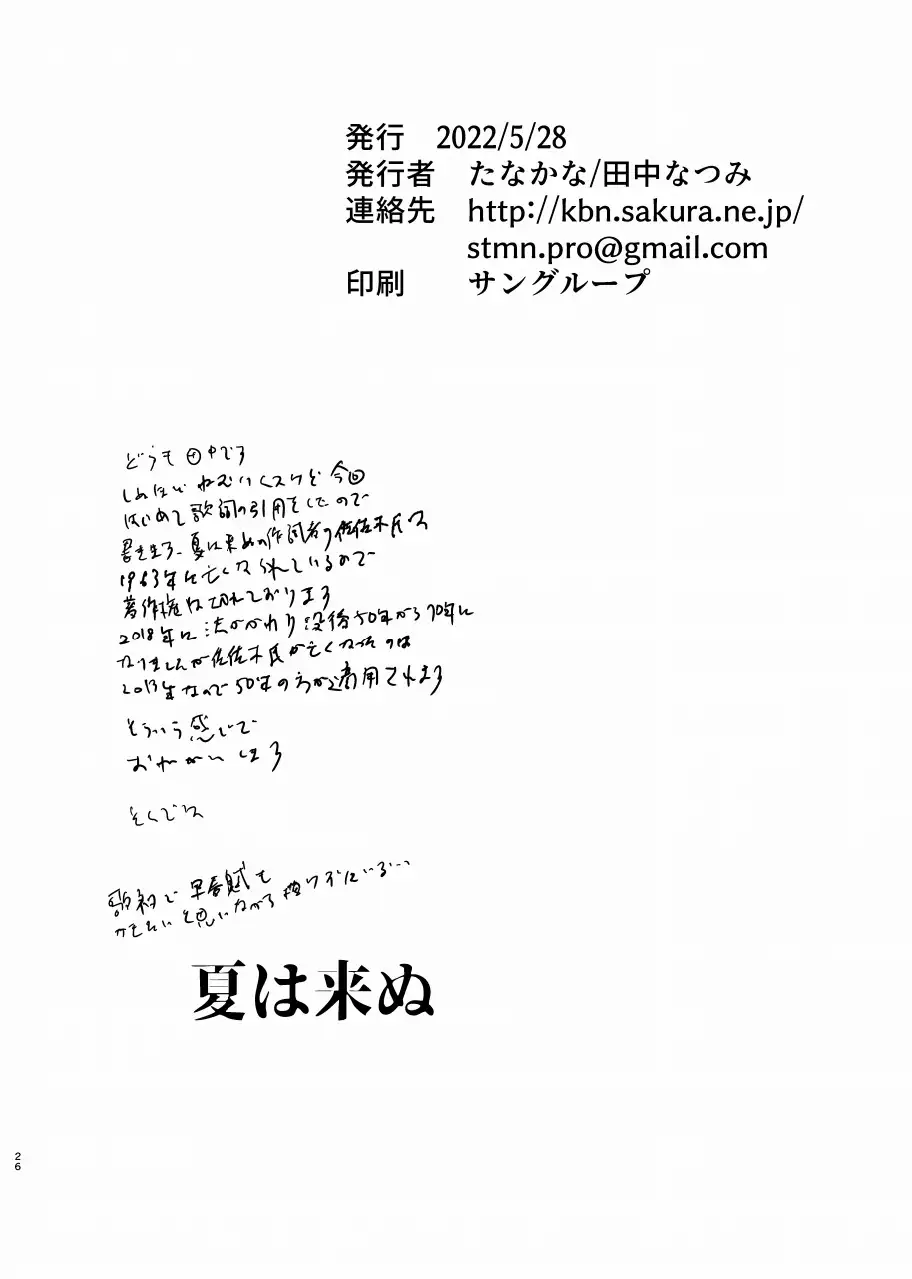 発行 2022/5/28
発行者 たなかな/田中なつみ
連絡先 http://kbn.sakura.ne.jp/
stmn.pro@gmail.com
印刷 サングループ
どうも田中です
ねむいんスけど今回
はじめて歌詞の引用をしたので
書きます、夏は来ぬの作詞者の佐佐木氏は
1963年に亡くなられているので
著作権は切れております
2018年に法がかわり没後50年から70年に
なりましたが佐佐木氏が亡くなったのは
2013年なので50年の方が適用されます
そういう感じで
おねがいします
そんでは
歌詞で早春賦も
と思いながら描けずにいる…
夏は来ぬ
26